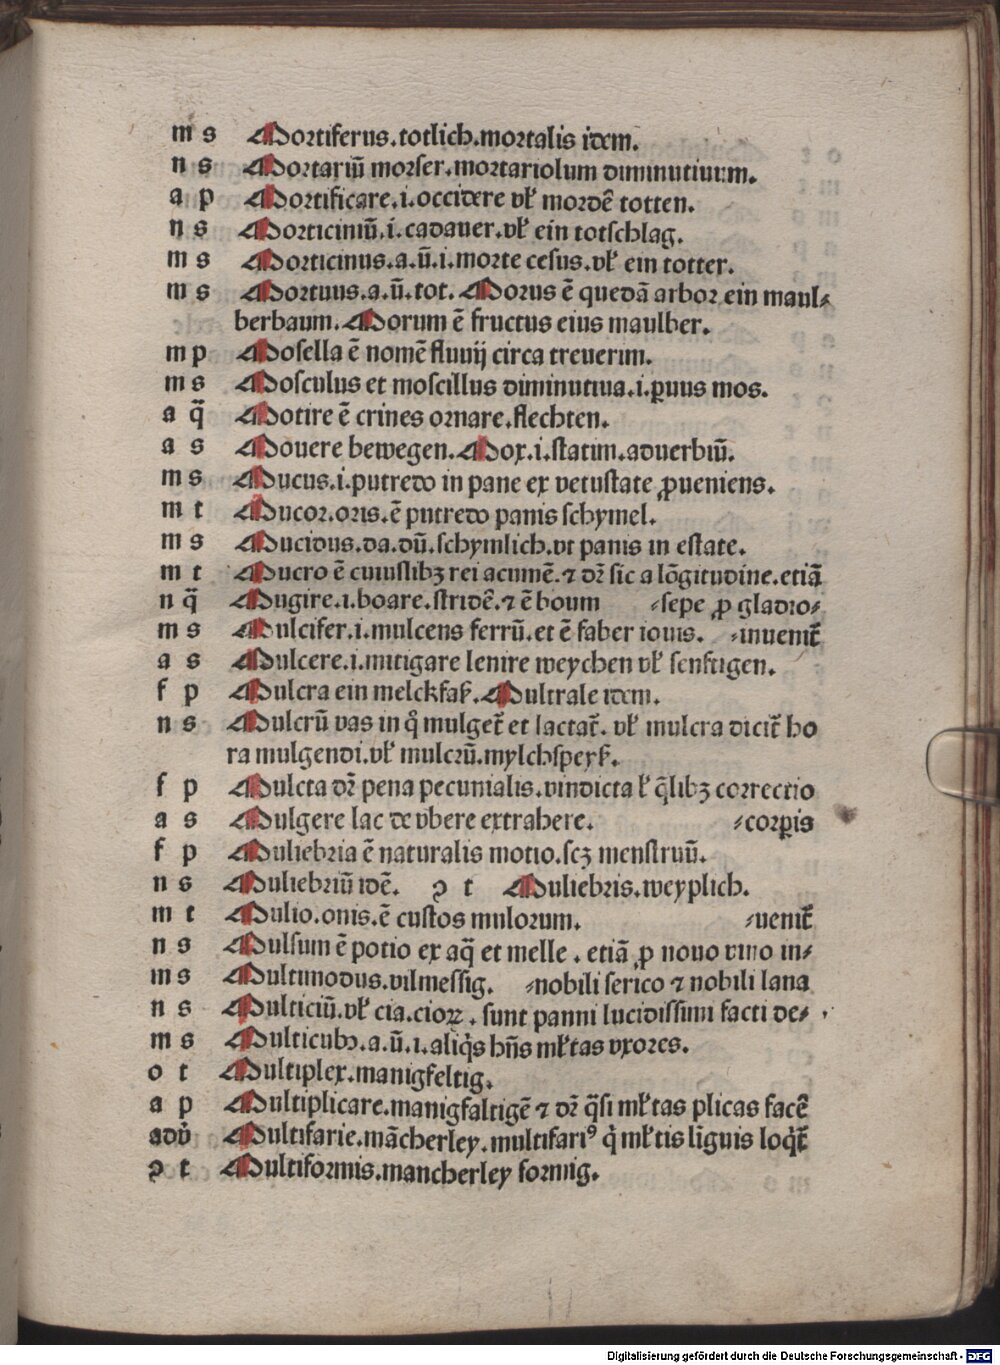 m s Mortiferus.totlich.mortalis idem.
n s Mortariū morser.mortariolum diminutiuum.
a p Mortificare.i.occidere vł mordē totten.
n s Morticiniū.i.cadauer.vł ein totschlag.
m s Morticinus.a.ū.i.morte cesus.vł ein totter.
m s Mortuus.a.ū.tot.Morus ē quedā arbor ein maul⸗
berbaum.Morum ē fructus eius maulber.
m p Mosella ē nomē fluuij circa treuerim.
m s Mosculus et moscillus diminutiua.i.ꝑuus mos.
a q̄ Motire ē crines ornare.flechten.
a s Mouere bewegen.Mox.i.statim.aduerbiū.
m s Mucus.i.putredo in pane ex vetustate ꝓueniens.
m t Mucor.oris.ē putredo panis schymel.
m s Mucidus.da.dū.schymlich.vt panis in estate.
m t Mucro ē cuiuslibꝫ rei acumē.⁊ dr̄ sic a lōgitudine.etiā
n q̄ Mugire.i.boare.stridē.⁊ ē boum ⸗sepe ꝓ gladio⸗
m s Mulcifer.i.mulcens ferrū.et ē faber iouis. ⸗inuenit̄
a s Mulcere.i.mitigare lenire weychen vł senftigen.
f p Mulcra ein melckfaß.Multrale idem.
n s Mulcrū vas in qͦ mulget̄ et lactat̄. vł mulcra dicit̄ ho
ra mulgendi.vł mulcrū.mylchspeyß.
f p Mulcta dr̄ pena pecunialis.vindicta ł q̄libꝫ correctio
a s Mulgere lac de vbere extrahere. ⸗corꝑis
f p Muliebria ē naturalis motio.scꝫ menstruū.
n s Muliebriū idē. ꝯ t Muliebris.weyplich.
m t Mulio.onis.ē custos mulorum. ⸗uenit̄
n s Mulsum ē potio ex aq̄ et melle . etiā ꝓ nouo vino in⸗
m s Multimodus.vilmessig. ⸗nobili serico ⁊ nobili lana
n s Multiciū.vł cia.cioꝝ . sunt panni lucidissimi facti de⸗
m s Multicubꝰ.a.ū.i.aliq̇s hn̄s młtas vxores.
o t Multiplex.manigfeltig.
a p Multiplicare.manigfaltigē ⁊ dr̄ q̄si młtas plicas facē
adū Multifarie.mācherley.multifariꝰ q̇ młtis līguis loq̇t̄
ꝯ t Multiformis.mancherley formig.
Digitalisierung gefördert durch die Deutsche Forschungsgemeinschaft - DFG